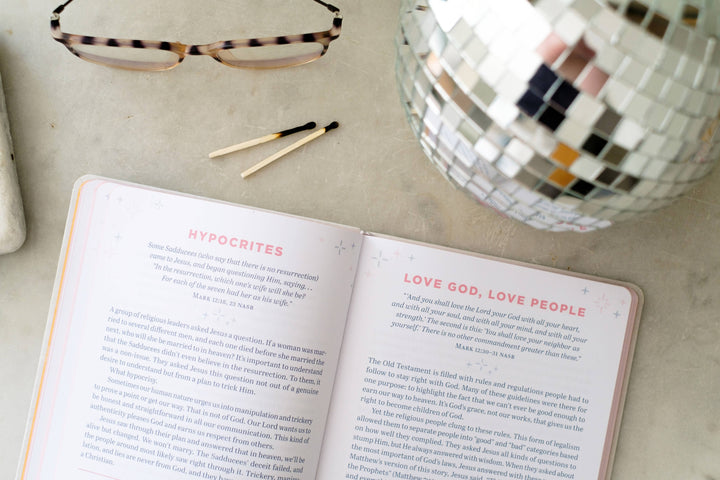 HYPOCRITES
Some Sadducees (who say that there is no resurrection)
came to Jesus, and began questioning Him, saying, . . .
"In the resurrection, which one's wife will she be?
For each of the seven had her as his wife."
MARK 12:18, 23 NASB
A group of religious leaders asked Jesus a question. If a woman was mar-
ried to several different men, and each one died before she married the
next, who will she be married to in heaven? It's important to understand
that the Sadducees didn't even believe in the resurrection. To them, it
was a non-issue. They asked Jesus this question not out of a genuine
desire to understand but from a plan to trick Him.
What hypocrisy.
Sometimes our human nature urges us into manipulation and trickery
to prove a point or get our way. That is not of God. Our Lord wants us to
be honest and straightforward in all our communication. This kind of
authenticity pleases God and earns us respect from others.
Jesus saw through their plan and answered that in heaven, we'll be
alive but changed. We won't marry. The Sadducees' deceit failed, and
the people around most likely saw right through it. Trickery, manipu-
lation, and lies are never from God, and they have
a Christian.
LOVE GOD, LOVE PEOPLE
"And you shall love the Lord your God with all your heart,
and with all your soul, and with all your mind, and with all your
strength.' The second is this: 'You shall love your neighbor as
yourself.' There is no other commandment greater than these."
MARK 12:30–31 NASB
The Old Testament is filled with rules and regulations people had to
follow to stay right with God. Many of these guidelines were there for
one purpose: to highlight the fact that we can't ever be good enough to
earn our way to heaven. It's God's grace, not our works, that gives us the
right to become children of God.
Yet the religious people clung to these rules. This form of legalism
allowed them to separate people into "good" and "bad" categories based
on how well they complied. They asked Jesus all kinds of questions to
stump Him, but He always answered with wisdom. When they asked about
the most important of God's laws, Jesus answered with these
Matthew's version of this story, Jesus said,
the Prophets" (Matthew